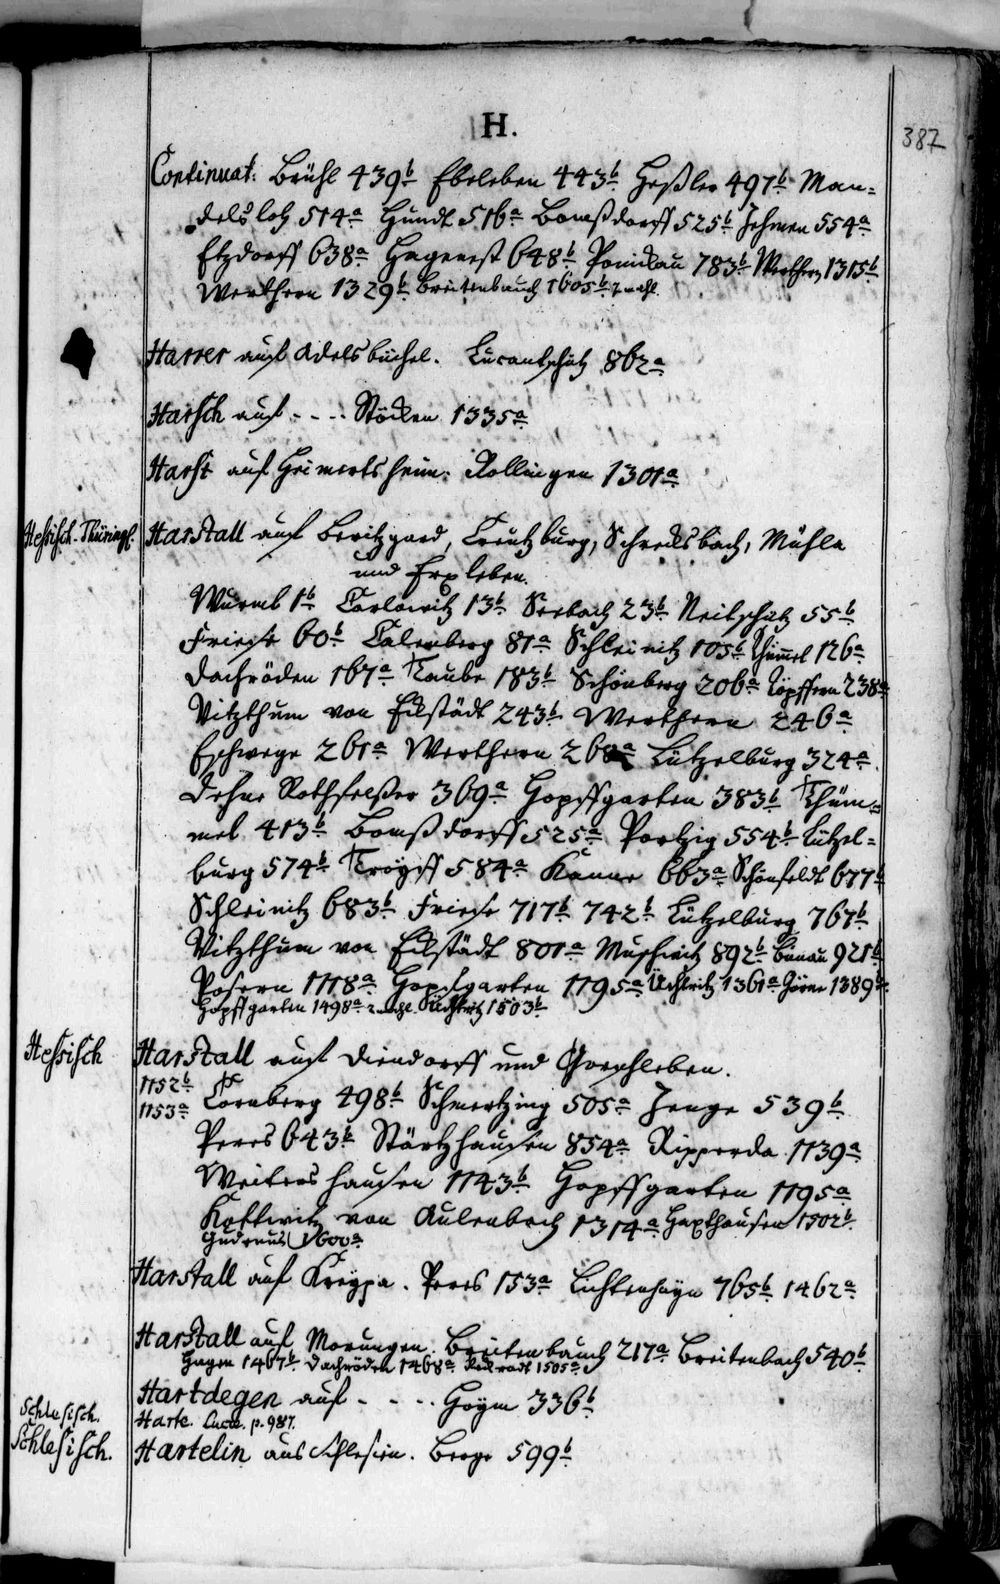 H.
387
Continuat. Brühl 439b Ebeleben 443b Heßler 497b Man=
delsloh 514a Hundt 516a Bomßdorff 525b Jehmen 554a
Etzdorff 638a Hagenest 648b Ponickau 783b Werthern 1315b
Werthern 1329b Breitenbauch 1605b 2 mahl.
Harrer auf Adelsbüchel. Lucantschütz 862a
Harsch auf - - - - Stöcken 1335a
Harst auf Heimertsheim. Rollingen 1301a
Hessisch. Thüringl.
Harstall auf Beritzgard, Creutzburg, Schrecksbach, Mühla
und Erxleben.
Wurmb 1b Carlowitz 13b Seebach 23b Neitschütz 55b
Friese 60b Calenberg 81a Schleinitz 105b Thümmel 126a
Dachröden 167a Taube 183b Schönberg 206a Töpffern 238a
Vitzthum von Eckstädt 243b Werthern 246a
Eschwege 261a Werthern 268a Lützelburg 324a
Dehne Rothfelßer 369a Hopffgarten 383b Thüm=
mel 413b Bomßdorff 525a Portzig 554b Lützel=
burg 574b Troyff 584a Kanne 663a Schönfeldt 677b
Schleinitz 683b Friese 717b 742b Lützelburg 767b
Vitzthum von Eckstädt 801a Muschwitz 892b Bünau 921b
Posern 1118a Hopffgarten 1195a Üchtritz 1361a Görne 1389b
Hopffgarten 1498a 2 mahl. Üchtritz 1503b
Hessisch
Harstall auf Diendorff und Gorschleben.
1152b
1153a
Cornberg 498b Schmertzing 505a Zenge 539b
Peres 643b Störtzhausen 854a Ripperda 1139a
Weitershausen 1143b Hopffgarten 1195a
Kottwitz von Aulenbach 1314a Haxthausen 1502b
Gudenus 1600a
Harstall auf Kreypa. Peres 153a Lichtenhayn 765b 1462a
Harstall auf Morungen. Breitenbauch 217a Breitenbach 540b
Hagen 1467b Dachröden 1468a 1505a
Hartdegen auf - - - - Hoym 336b
Schlesisch.
Harte. Lucae. p. 987.
Schlesisch.
Hartelin aus Schlesien. Berge 599b